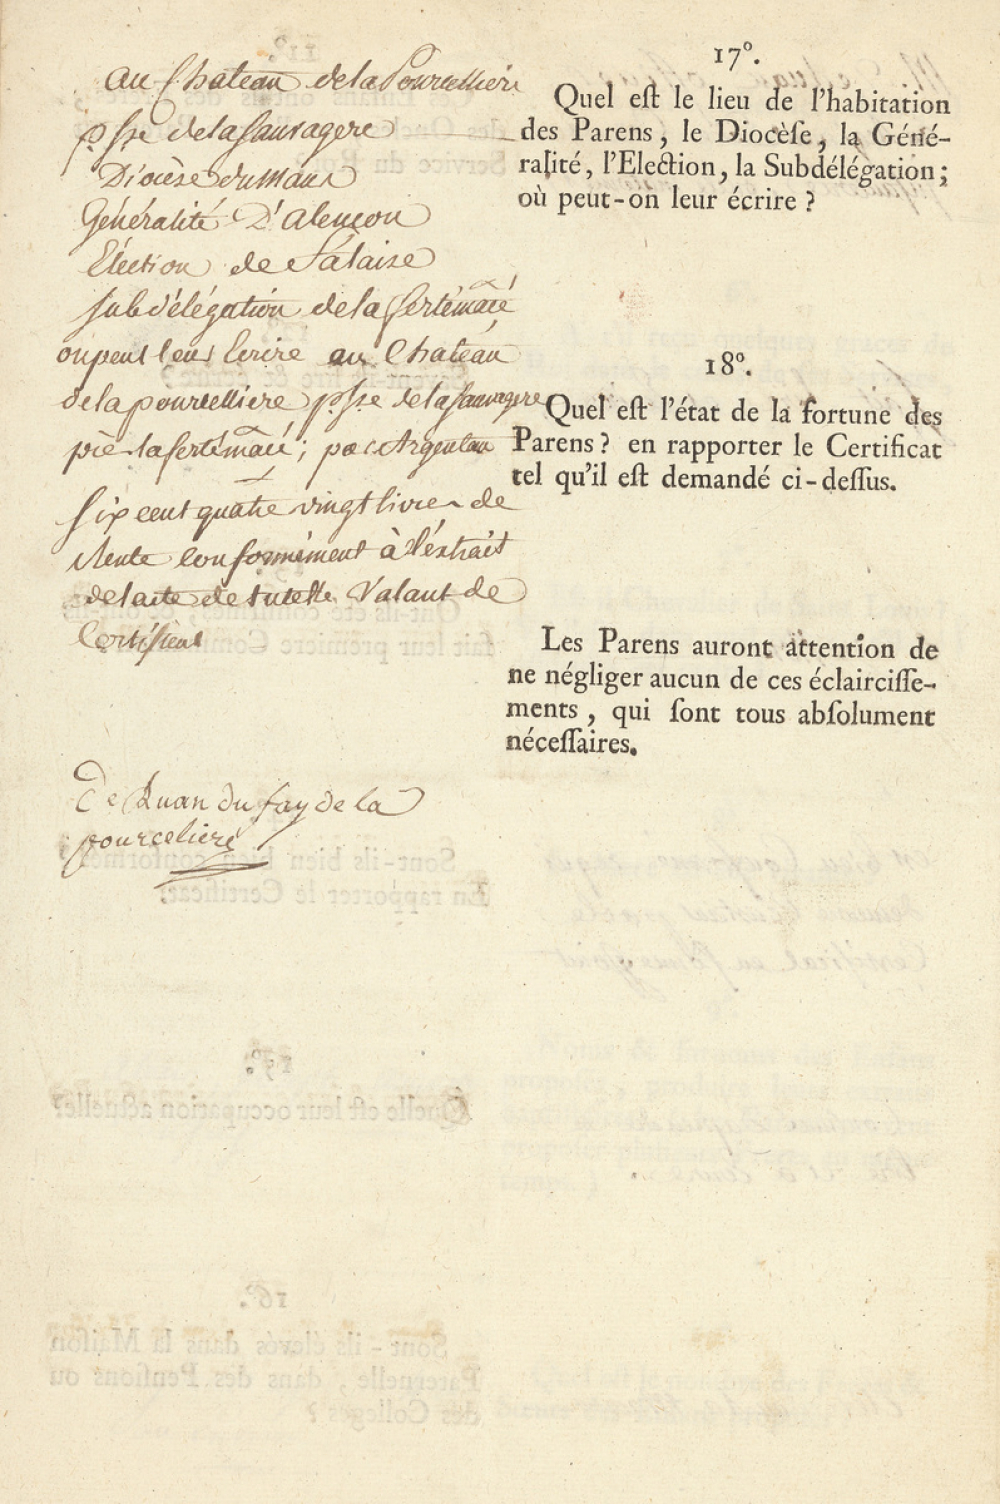 au Chateau de la Pourcelliere
psse de la Sauvagere
Diocèse du Mans
Généralité D'alençon
Election de Falaise
subdélégation de la fertémacé
on peut leur Ecrire au Chateau
de la pourcelliere psse de la Sauvagere
près la fertémacé; par Argentan
Six cent quatre vingt livres de
Rente conformément à l'éxtrait
de l'acte de tutelle Valant de
Certificat
De Ruan du fay de la
pourceliere
17°.
Quel eſt le lieu de l'habitation
des Parens, le Diocèſe, la Géné-
ralité, l'Election, la Subdélégation;
où peut-on leur écrire ?
18°.
Quel eſt l'état de la fortune des
Parens ? en rapporter le Certificat
tel qu'il eſt demandé ci-deſſus.
Les Parens auront attention de
ne négliger aucun de ces éclairciſſe-
ments, qui ſont tous abſolument
néceſſaires.